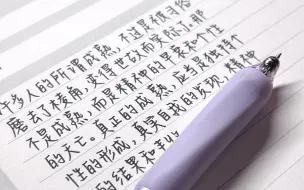 许多人的所谓成熟，不过是被习俗
磨去了棱角，变得世故而实际了。那
不是成熟，而是精神的早衰和个性
的夭亡。真正的成熟，应当是独
性的形成，真实自我的发现，精神
的结果和